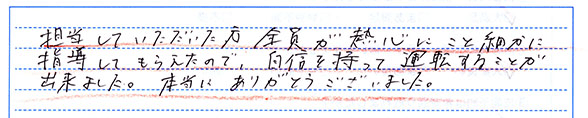 担当していただいた方全員が熱心にこと細かに
指導してもらえたので、自信を持って運転することが
出来ました。本当にありがとうございました。